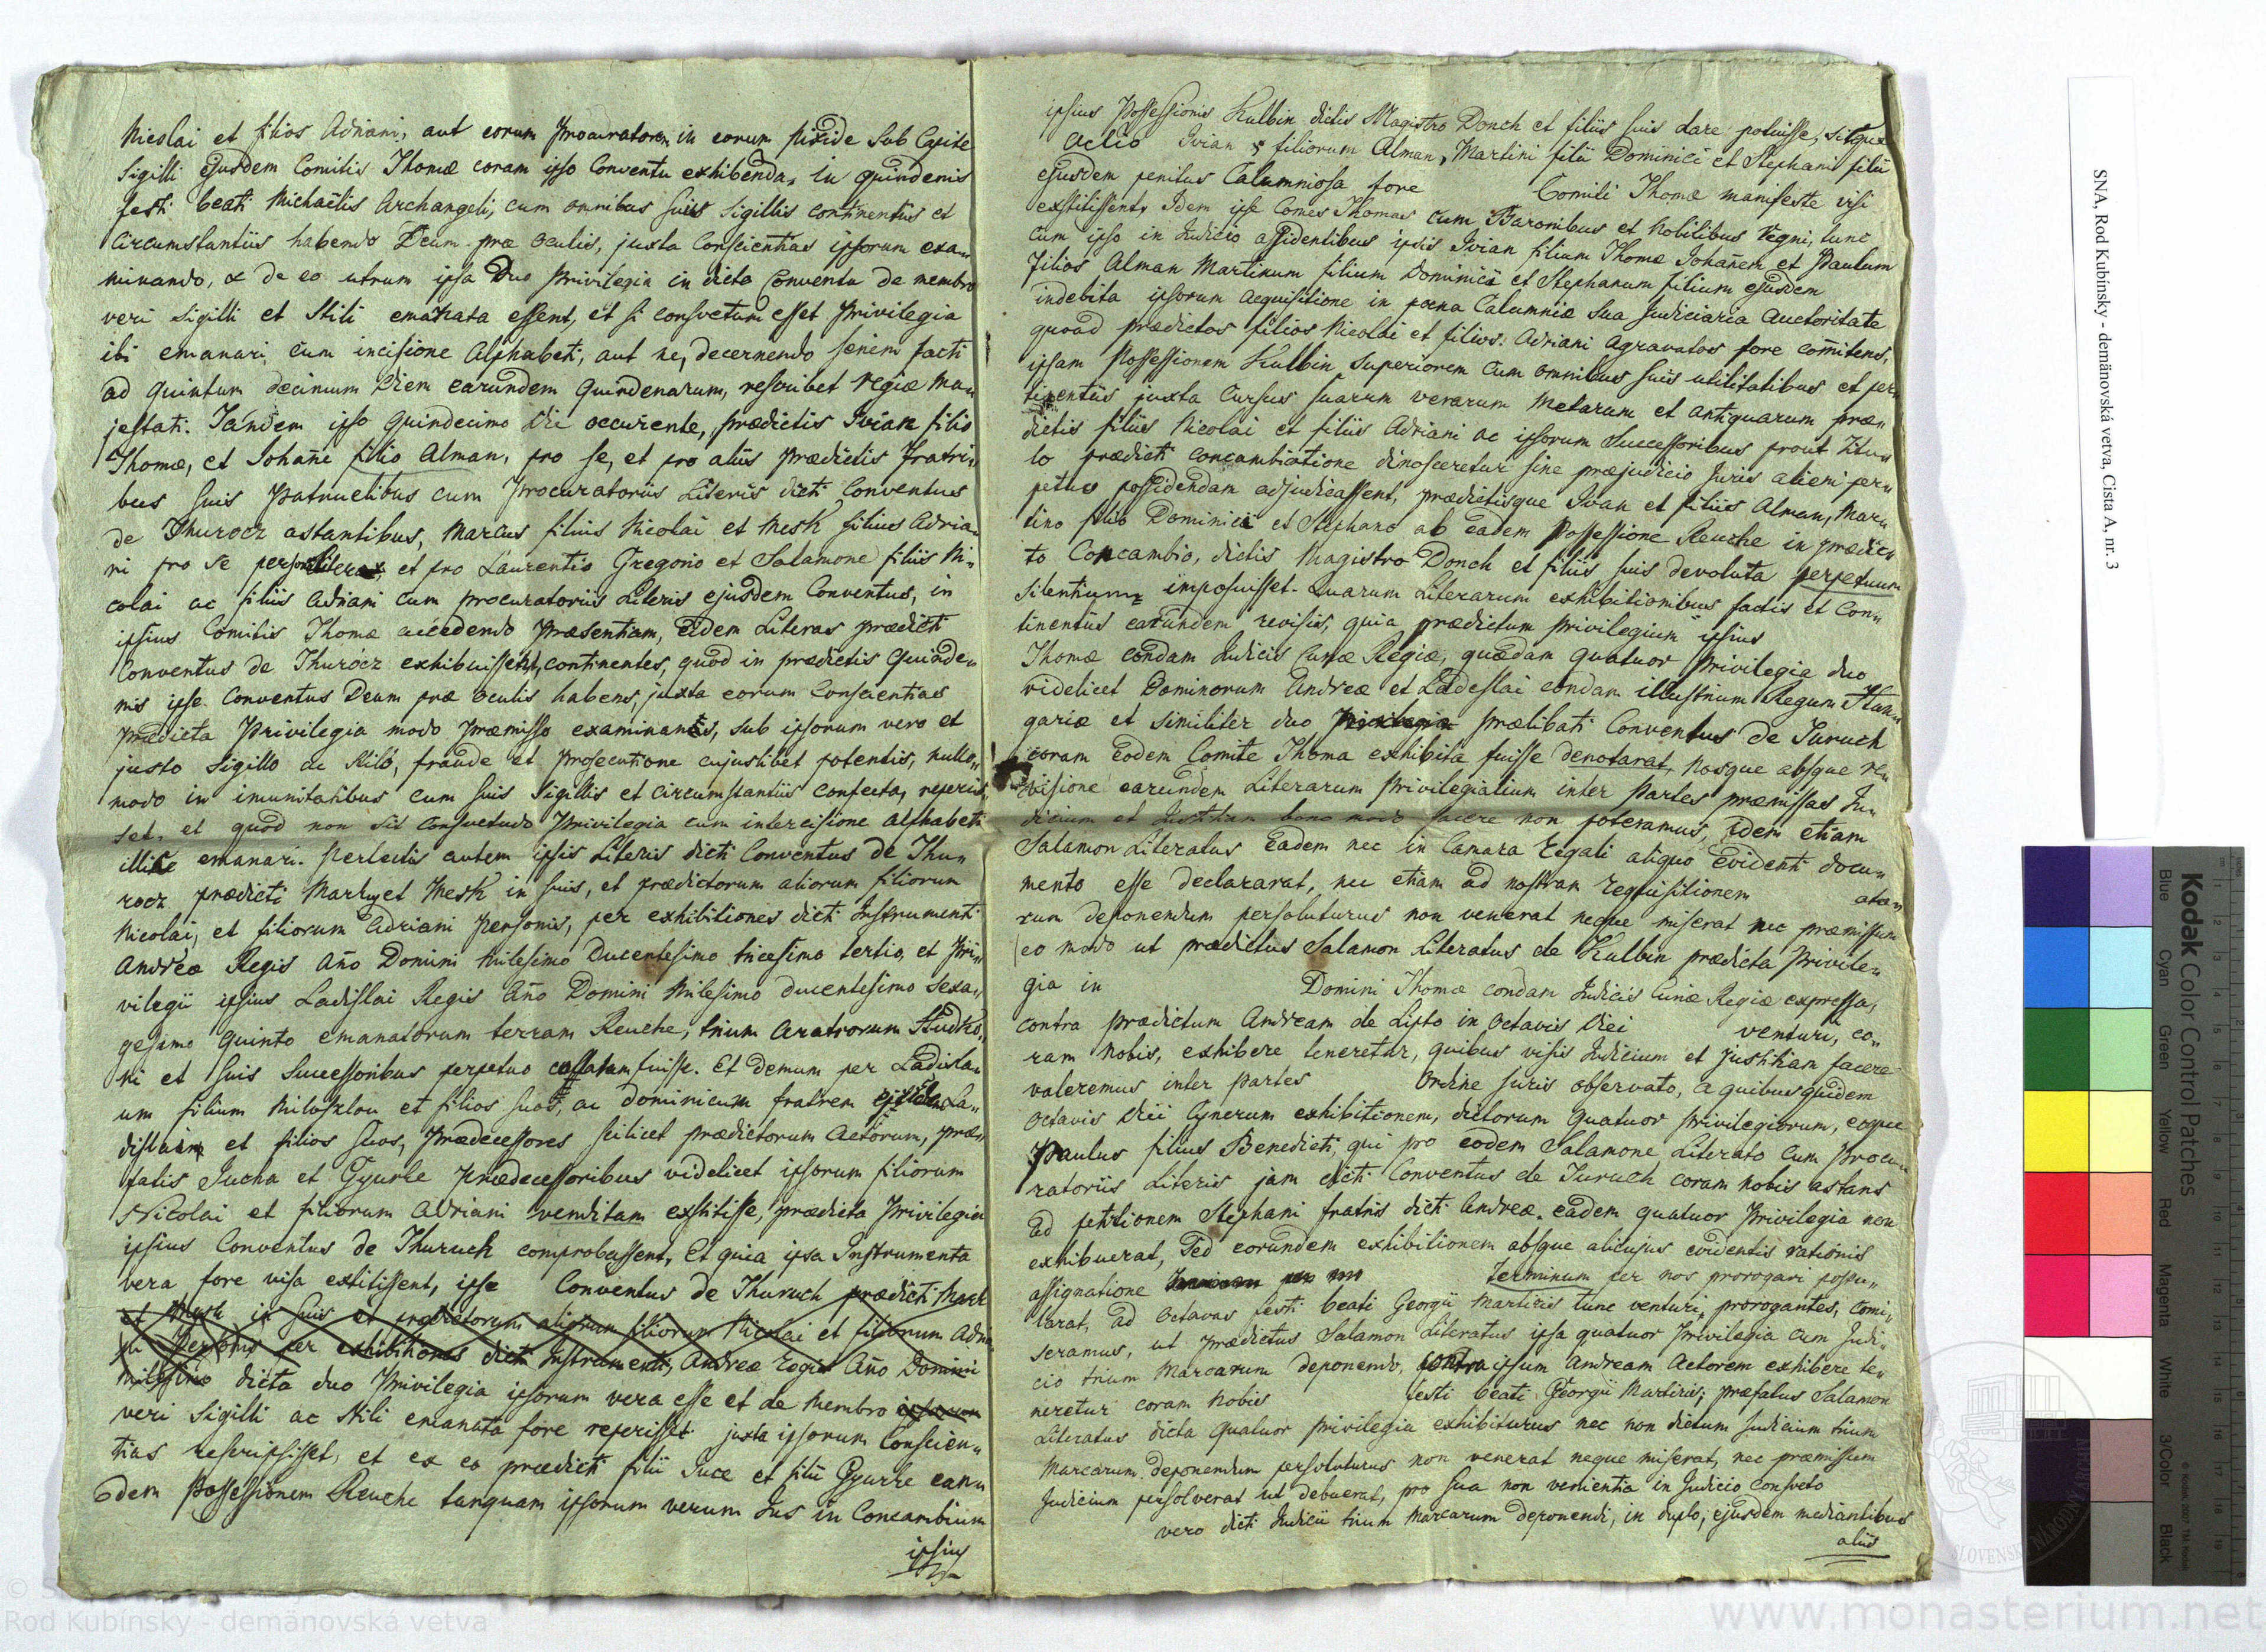 Nicolai et filios Adriani, aut eorum Procuratorem in eorum pixide Sub Capite
Sigilli ejusdem Comitis Thomæ coram ipso Conventu exhibenda, in quindenis
festi beati Michaëlis Archangeli, cum omnibus suis Sigillis continentiis et
Circumstantiis habendo Deum præ oculis, juxta Conscientias ipsorum exa„
minando, & de eo utrum ipsa Duo Privilegia in dicto Conventu de membro
veri Sigilli et Stili emanata essent, et si consvetum esset Privilegia
ibi emanari cum incisione Alphabeti, aut ne, decernendo seriem facti
ad quintum decimum Diem earundem Quindenarum, rescribet Regiæ Ma„
jestati. Tandem ipso Quindecimo Die occurente, prædictis Ivian filio
Thomæ, et Johañe filio Alman, pro se, et pro aliis prædictis Fratri„
bus suis Patruelibus cum Procuratoriis Literis dicti Conventus
de Thurocz astantibus, Marcus filius Nicolai et Mesk filius Adria„
ni pro se personaliter et pro Laurentio Gregorio et Salamone filiis Ni„
colai ac filiis Adriani cum procuratoriis Literis ejusdem Conventus, in
ipsius Comitis Thomæ accedendo Præsentiam, Eidem Literas prædicti
Conventus de Thurócz exhibuissent, continentes, quod in prædictis Quinde„
nis ipse Conventus Deum præ oculis habens, juxta eorum Conscientias
prædicta Privilegia modo præmisso examinans, sub ipsorum vero et
justo Sigillo ac Stilo, fraude et prosecutione cujuslibet potentis, nullo„
modo in imunitatibus cum suis Sigillis et circumstantiis confecta, reperis„
set, et quod non sit consvetudo Privilegia cum intercisione alphabeti
illice emanari. Perlectis autem ipsis Literis dicti Conventus de Thu„
rocz prædicti Mark et Mesk in suis, et prædictorum aliorum filiorum
Nicolai, et filiorum Adriani Personis, per exhibitiones dicti Instrumenti
Andreæ Regis Año Domini Milesimo Ducentesimo tricesimo tertio, et Pri„
vilegii ipsius Ladislai Regis Año Domini Milesimo ducentesimo Sexa„
gesimo Quinto emanatorum terram Reuche, trium Aratrorum Hudko„
ni et suis Successoribus perpetuo collatam fuisse. Et demum per Ladisla„
um filium Miloslou et filios suos, ac Dominicum fratrem La„
dislai et filios suos, Prædecessores scilicet prædictorum Actorum, præ„
fatis Jucha et Gyurke Prædecessoribus videlicet ipsorum filiorum
Nicolai et filiorum Adriani venditam exstitisse, prædicta Privilegia
ipsius Conventus de Thuruch comprobassent, Et quia ipsa Instrumenta
vera fore visa extitissent, ipse Conventus de Thuruch prædicti Mark
et Mesk in suis et prædictorum aliorum filiorum Nicolai et filiorum Adri
Personis per exhibitiones dicti Instrumenti, Andreæ Regis Año Domini
milesimo dicta duo Privilegia ipsorum vera esse et de Membro ipsorum
veri Sigilli ac Stili emanata fore reperisset juxta ipsorum Conscien„
tias rescripsisset, et ex eo prædicti filii Juce et filii Gyurke ean„
dem Possessionem Reuche tanquam ipsorum verum Jus in Concambium
ipsius
ipsius Possessionis Kulbin dictis Magistro Donch et filiis suis dare potuisse, sitque
Actio Ivian & filiorum Alman, Martini filii Dominici et Stephani filii
ejusdem penitus Calumniosa fore Comiti Thomæ manifeste visi
exstitissent, Idem ipse Comes Thomas cum Baronibus et Nobilibus Regni, tunc
cum ipso in Judicio assidentibus ipsis Ivian filium Thomæ Johañem et Paulum
filios Alman Martinum filium Dominici et Stephanum filium ejusdem
indebita ipsorum acquisitione in poena Calumniæ Sua Judiciaria Auctoritate
quoad prædictos filios Nicolai et filios Adriani Agravatos fore comitens,
ipsam Possessionem Kulbin Superiorem Cum omnibus suis utilitatibus et per„
tinentiis juxta Cursus suarum verarum Metarum et antiquarum præ„
dictis filiis Nicolai et filiis Adriani ac ipsorum Successoribus prout titu„
lo prædicti concambiatione dinosceretur sine præjudicio Juris alieni per„
petuo possidendam adjudicassent, prædictisque Ivan et filiis Alman, Mar„
tino filio Dominici et Stephano ab Eadem Possessione Reuche in prædic„
to Concambio, dictis Magistro Donch et filiis suis devoluta perpetuum
Silentium imposuisset. Quarum Literarum exhibitionibus factis et Con„
tinentiis earundem revisis, quia prædictum Privilegium ipsius
Thomæ condam Judicis Curiæ Regiæ, quædam Quatuor Privilegia duo
videlicet Dominorum Andreæ et Ladeslai condam illustrium Regum Hun„
gariæ et similiter duo Privilegia prælibati Conventus de Turuch
coram Eodem Comite Thoma exhibita fuisse denotarat, Nosque absque re„
visione earundem Literarum Privilegialium inter Partes præmissas Ju„
dicium et Justitiam bono modo facere non poteramus, idem etiam
Salamon Literatus Eadem nec in Camara Regali aliquo Evidenti docu„
mento esse declararat, nec etiam ad nostram requisitionem
rum deponendum persoluturus non venerat neque miserat nec præmissum
eo modo ut prædictus Salamon Literatus de Kulbin prædicta Privile„
gia in Domini Thomæ condam Judicis Curiæ Regiæ expressa,
contra prædictum Andream de Lipto in Octavis Diei venturi, co„
ram Nobis, exhibere teneretur, quibus visis Judicium et justitiam facere
valeremus inter Partes Ordine Juris observato, a quibusquidem
Octavis Diei Cynerum exhibitionem, dictorum Quatuor Privilegiorum, eoque
Paulus filius Benedicti, qui pro eodem Salamone Literato Cum Procu„
ratoriis Literis jam dicti Conventus de Turuch coram nobis astans
ad petitionem Stephani fratris dicti Andreæ. eadem quatuor Privilegia non
exhibuerat, Sed eorundem exhibitionem absque alicujus evidentis rationis
assignatione terminum per nos prorogari postu„
larat, ad Octavas festi beati Georgii Martiris tunc venturi, prorogantes, Comi„
seramus, ut prædictus Salamon Literatus ipsa quatuor Privilegia cum Judi„
cio trium Marcarum deponendo, contra ipsum Andream Actorem exhibere te„
neretur coram Nobis festi beati Georgii Martiris; præfatus Salamon
Literatus dicta Quatuor Privilegia exhibiturus nec non dictum Judicium trium
Marcarum deponendum persoluturus non venerat neque miserat, nec præmissum
Judicium persolverat ut debuerat, pro sua non venientia in Judicio consveto
vero dicti Judicii trium Marcarum deponendi, in duplo, ejusdem mediantibus
aliis
SNA, Rod Kubínsky - demänovská vetva, Cista A, nr. 3
Kodak Color Control Patches
Blue Cyan Green Yellow Red Magenta White 3/Color Black
Rod Kubínsky - demänovská vetva
www.monasterium.net